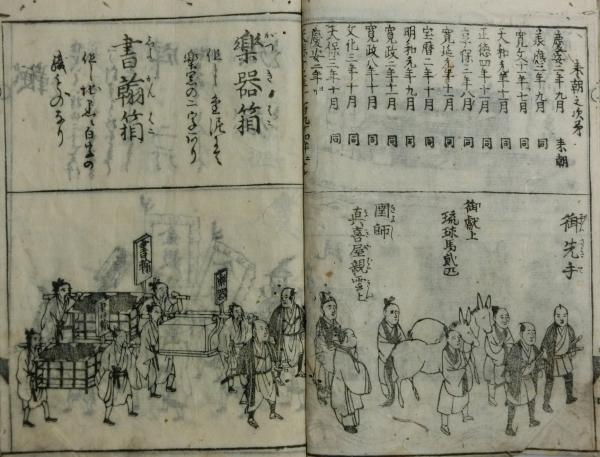 来朝之次第
慶安二年九月 来朝
承應二年九月 同
寛文十一年七月 同
天和二年十一月 同
正徳四年十二月 同
享保三年八月 同
寛延元年十二月 同
宝暦二年十二月 同
明和元年九月 同
寛政二年十一月 同
寛政八年十月 同
文化三年十一月 同
天保三年十一月 同
慶安二年
御先手
御献上
琉球馬貳疋
圉師
真喜屋親雲上
がくきはこ
樂器箱
但し金泥にて
楽器の二字あり
しよかんはこ
書翰箱
書翰
樂器